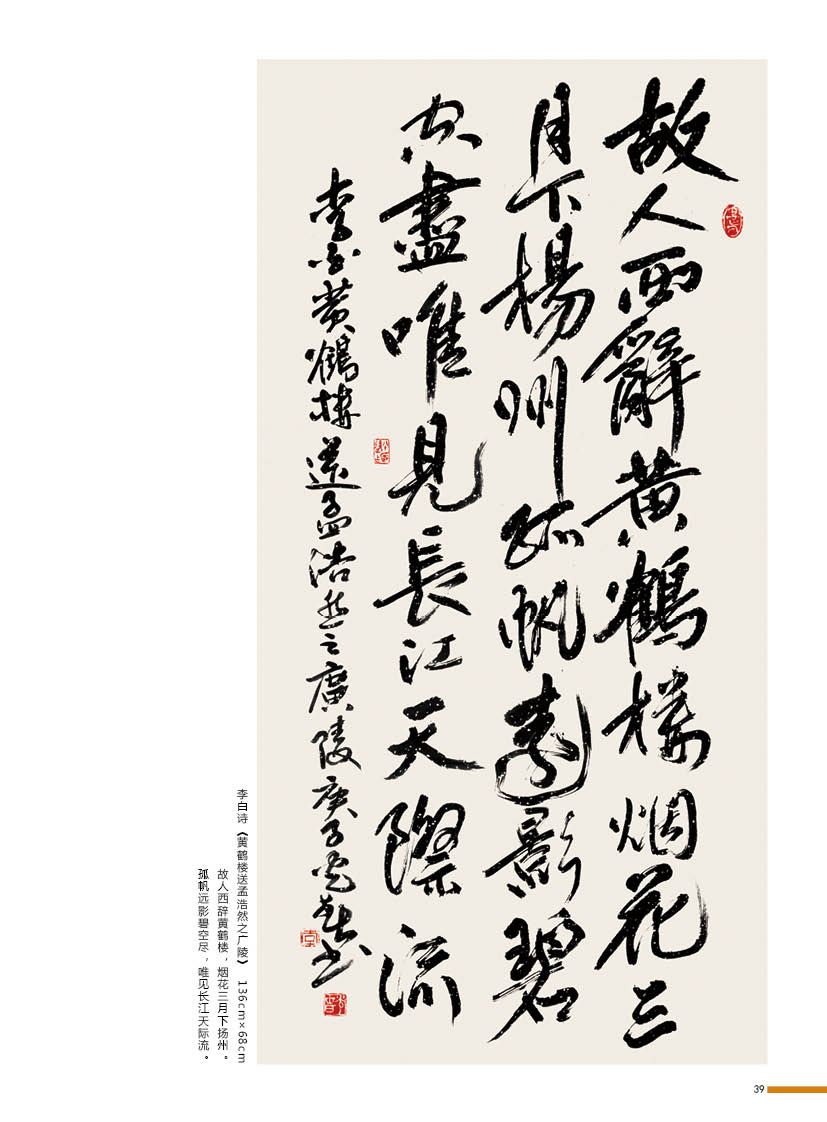 故人西辭黄鶴楼烟花三
月下揚州孤帆遠影碧
空盡唯見長江天際流
李白黄鶴樓送孟浩然之廣陵庚子
李白诗《黄鹤楼送孟浩然之广陵》 136cm×68cm
故人西辞黄鹤楼，烟花三月下扬州。
孤帆远影碧空尽，唯见长江天际流。
39